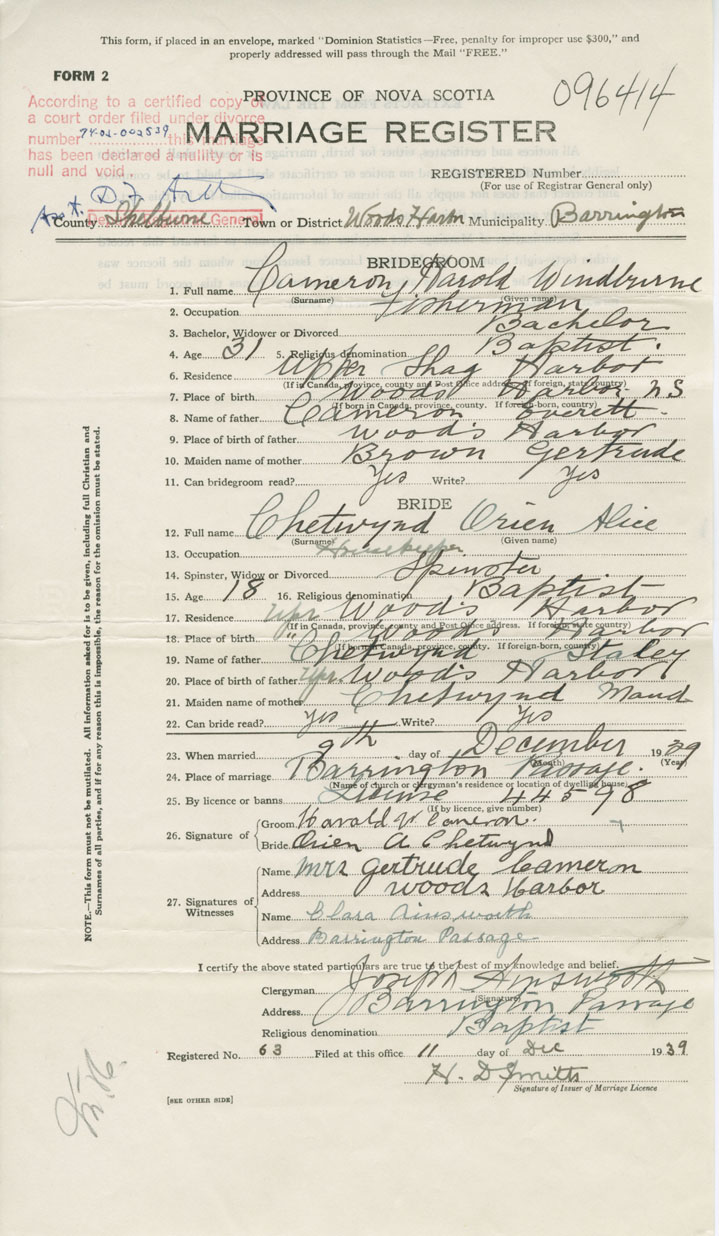 This form, if placed in an envelope, marked "Dominion Statistics—Free, penalty for improper use $300," and
properly addressed will pass through the Mail "FREE."
FORM 2
096414
PROVINCE OF NOVA SCOTIA
According to a certified copy of
a court order filed under divorce
number this marriage
has been declared a nullity or is
null and void.
MARRIAGE REGISTER
REGISTERED Number
(For use of Registrar General only)
General
County Shelburne Town or District Woods Harbor Municipality Barrington
BRIDEGROOM
1. Full name Cameron, Harold Windburne
(Surname) (Given name)
2. Occupation Fisherman
3. Bachelor, Widower or Divorced Bachelor
4. Age 31 5. Religious denomination Baptist.
6. Residence Upper Shag Harbor
(If in Canada, province, county and Post Office address. If foreign, state country)
7. Place of birth Woods Harbor, N.S
(If born in Canada, province, county. If foreign-born, country)
8. Name of father Cameron Everett
9. Place of birth of father Woods Harbor
10. Maiden name of mother Brown Gertrude
11. Can bridegroom read? Yes Write? Yes
BRIDE
12. Full name Chetwynd Orien Alice
(Surname) (Given name)
13. Occupation Housekeeper
14. Spinster, Widow or Divorced Spinster
15. Age 18 16. Religious denomination Baptist
17. Residence Upr Woods Harbor
(If in Canada, province, county and Post Office address. If foreign, state country)
18. Place of birth " Woods Harbor
(If born in Canada, province, county. If foreign-born, country)
19. Name of father Chetwynd Staley
20. Place of birth of father Upr Woods Harbor
21. Maiden name of mother Chetwynd Maud
22. Can bride read? Yes Write? Yes
23. When married 9th day of December 1939
(Month) (Year)
24. Place of marriage Barrington Passage.
(Name of church or clergyman's residence or location of dwelling house)
25. By licence or banns License 44598
(If by licence, give number)
26. Signature of Groom Harold W Cameron.
Bride Orien A Chetwynd
27. Signatures of Witnesses
Name Mrs Gertrude Cameron
Address Woods Harbor
Name Clara Ainsworth
Address Barrington Passage
I certify the above stated particulars are true to the best of my knowledge and belief.
Clergyman Joseph Ainsworth
(Signature)
Address Barrington Passage
Religious denomination Baptist
Registered No. 63 Filed at this office 11 day of Dec 1939
H. D Smith
Signature of Issuer of Marriage Licence
[SEE OTHER SIDE]
NOTE.—This form must not be mutilated. All information asked for is to be given, including full Christian and
Surnames of all parties, and if for any reason this is impossible, the reason for the omission must be stated.